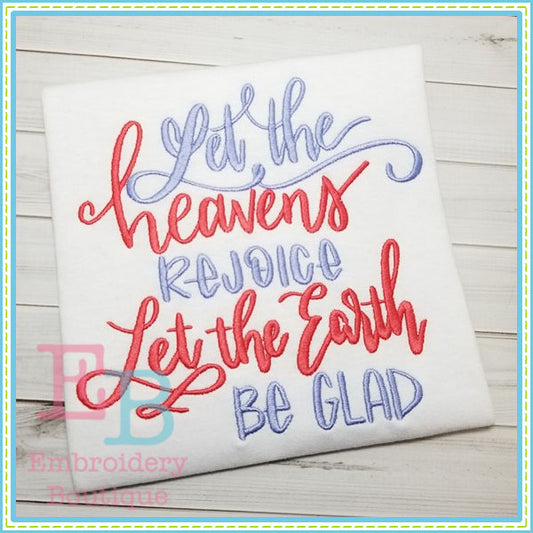 Let the
heavens
REJOICE
Let the Earth
BE GLAD
EB
Embroidery
Boutique